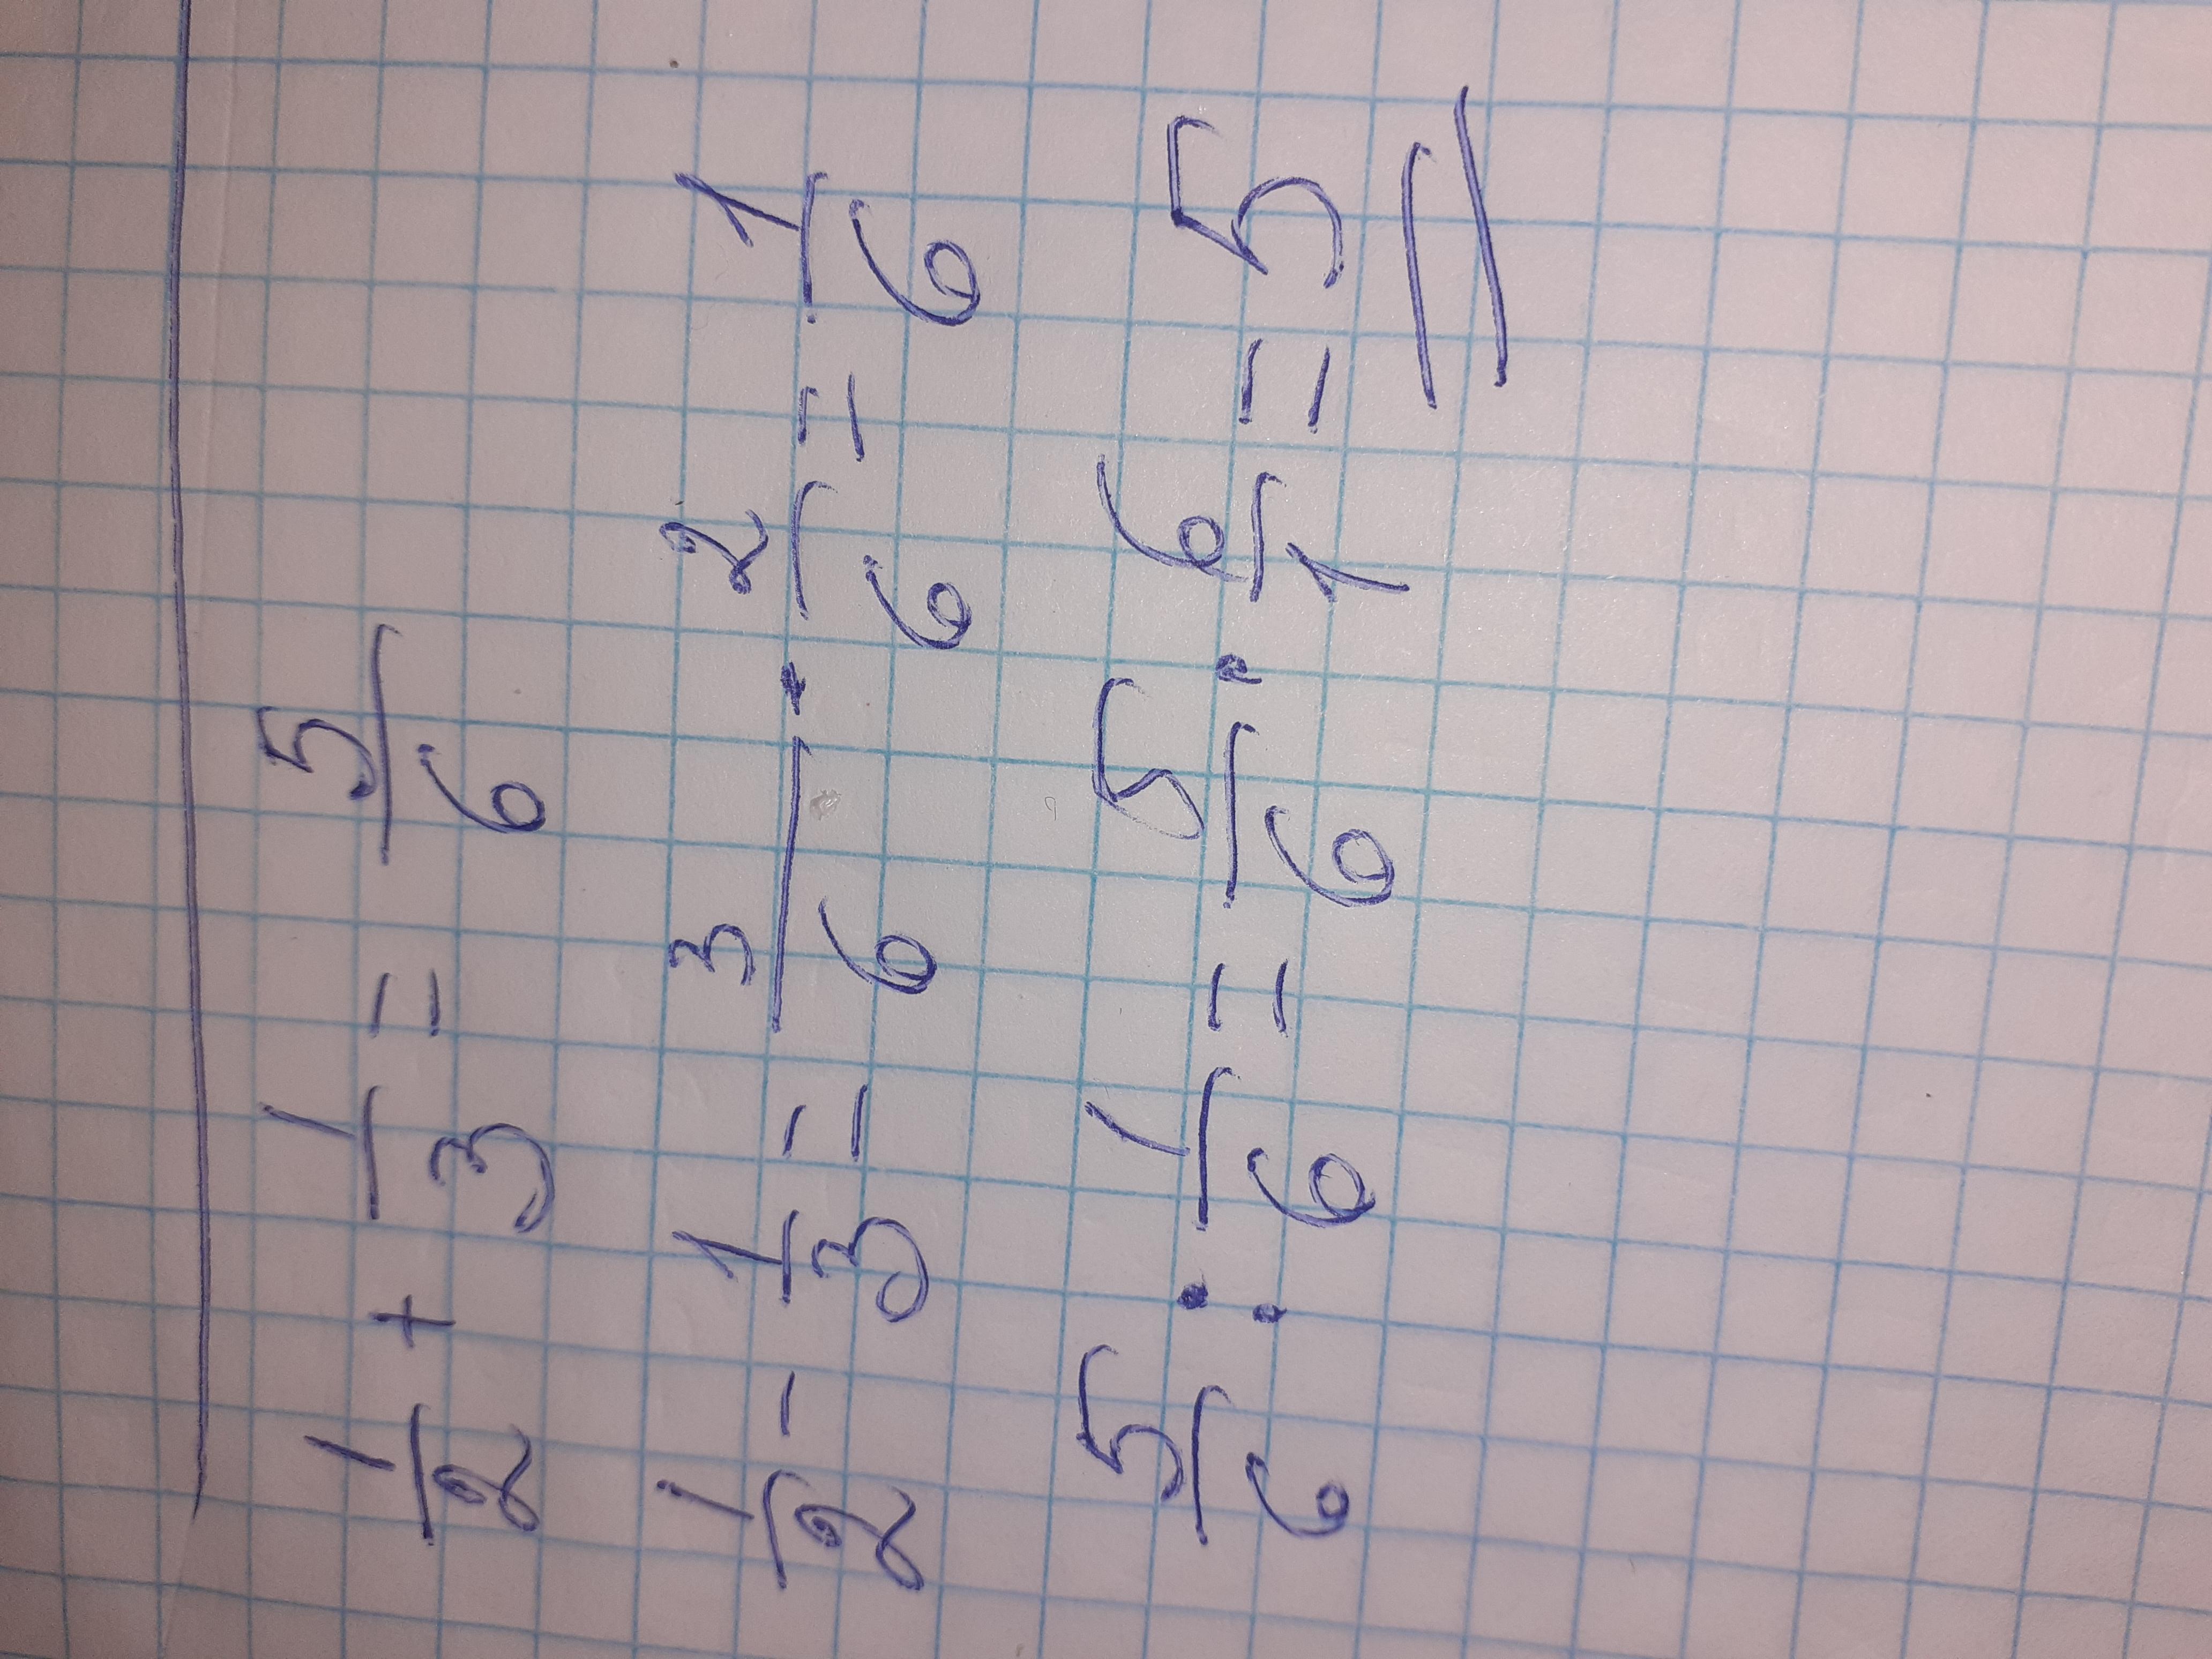 1/2 + 1/3 = 5/6
1/2 - 1/3 = 3/6 · 2/6 = 1/6
5/6 : 1/6 = 5/6 · 6/1 = 5